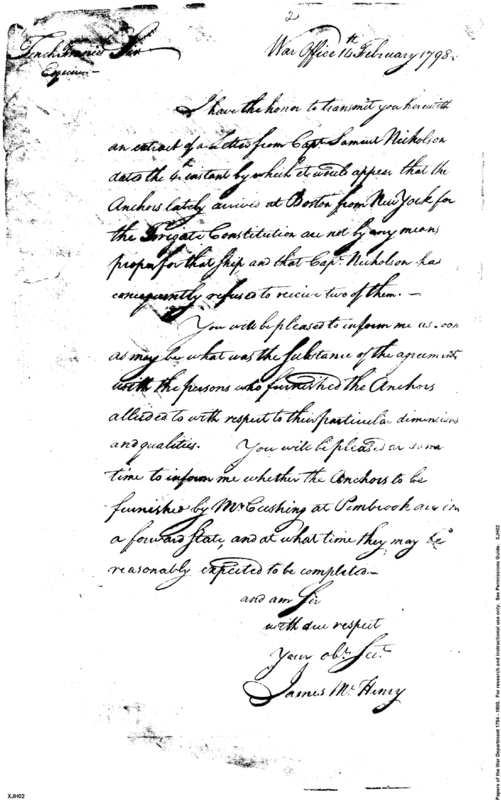 2
War Office 14th February 1798.
Tench Francis Sir
Esquire—
I have the honor to transmit you herewith
an extract of a Letter from Capt. Samuel Nicholson
dated the 4th instant by which it would appear that the
Anchors lately arrived at Boston from New York for
the Frigate Constitution are not by any means
proper for that Ship and that Capt. Nicholson has
consequently refused to recieve two of them.—
You will be pleased to inform me as soon
as may be what was the Substance of the agreement
with the persons who furnished the Anchors
alluded to with respect to their particular dimensions
and qualities. You will be pleased at same
time to inform me whether the Anchors to be
furnished by Mr. Cushing at Pembrook are in
a forward State, and at what time they may be
reasonably expected to be completed.—
and am Sir
with due respect
Your obt. Sert.
James McHenry
Papers of the War Department 1784 - 1800. For research and instructional use only. See Permissions Guide. XJH02
XJH02